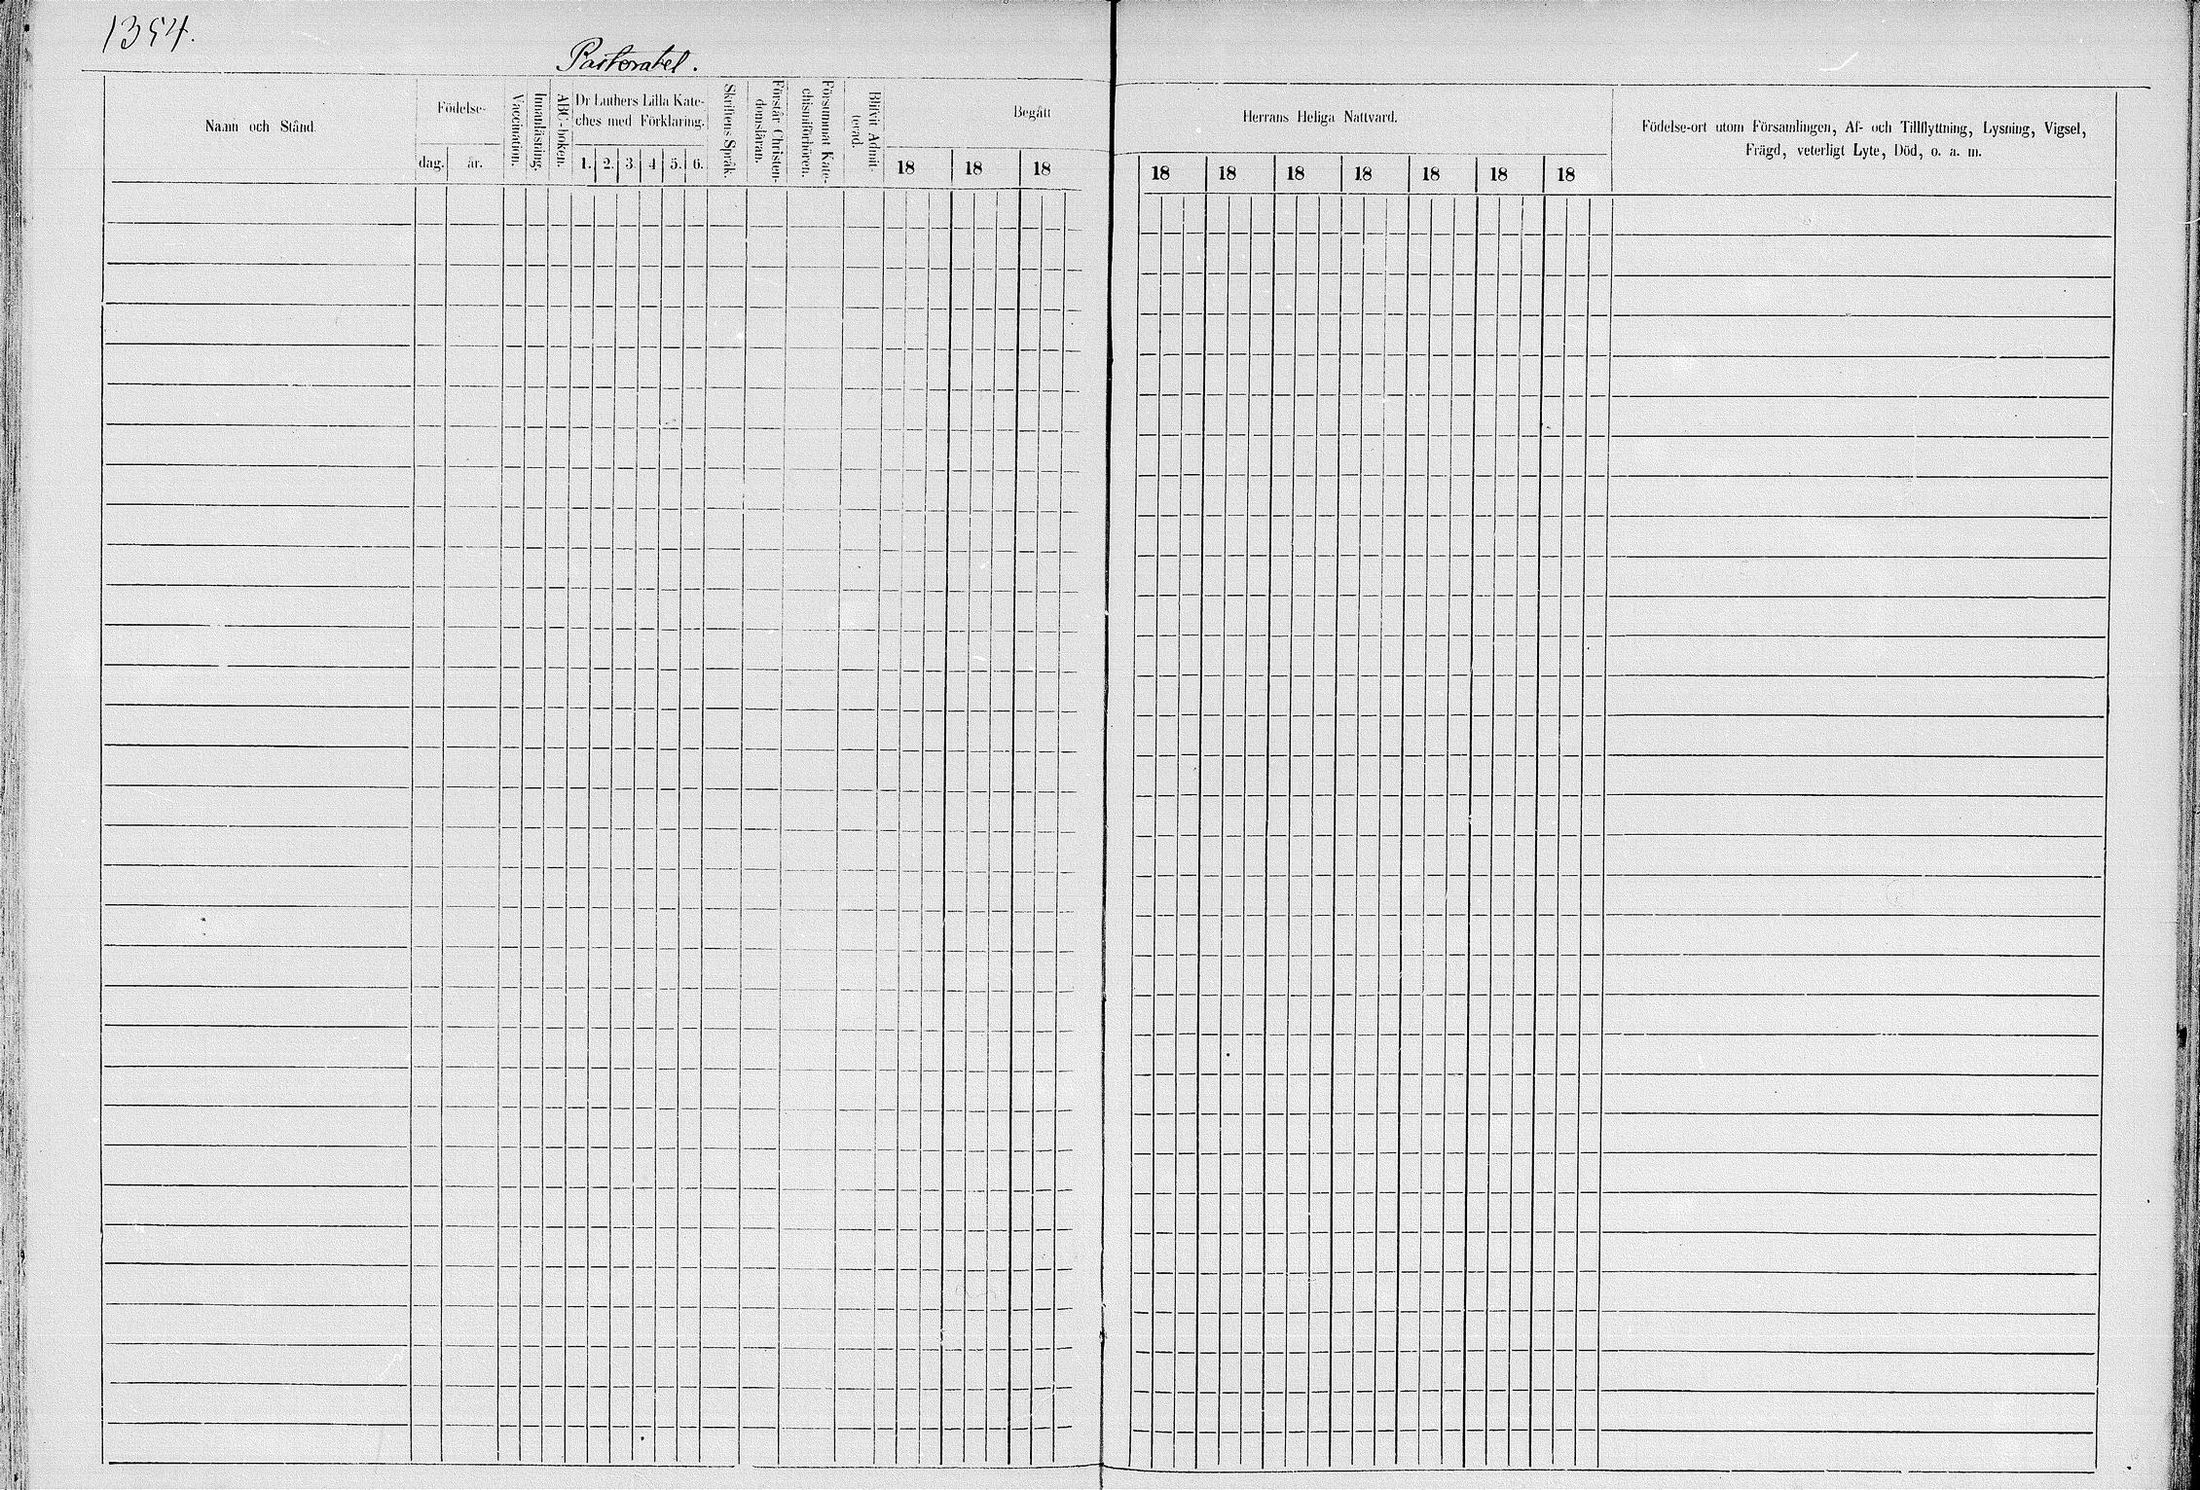 1354.
Pastoratet.
Namn och Stånd.
Födelse-
dag.
år.
Vaccination.
Innanläsning.
ABC-boken.
Dr Luthers Lilla Kate-
ches med Förklaring.
1. 2. 3 4 5. 6.
Skriftens Språk.
Förstår Christen-
domsläran.
Försummat Kate-
chismiförhören.
Blifvit Admit-
terad.
Begått
18 18 18
Herrans Heliga Nattvard.
18 18 18 18 18 18 18
Födelse-ort utom Församlingen, Af- och Tillflyttning, Lysning, Vigsel,
Frägd, veterligt Lyte, Död, o. a. m.